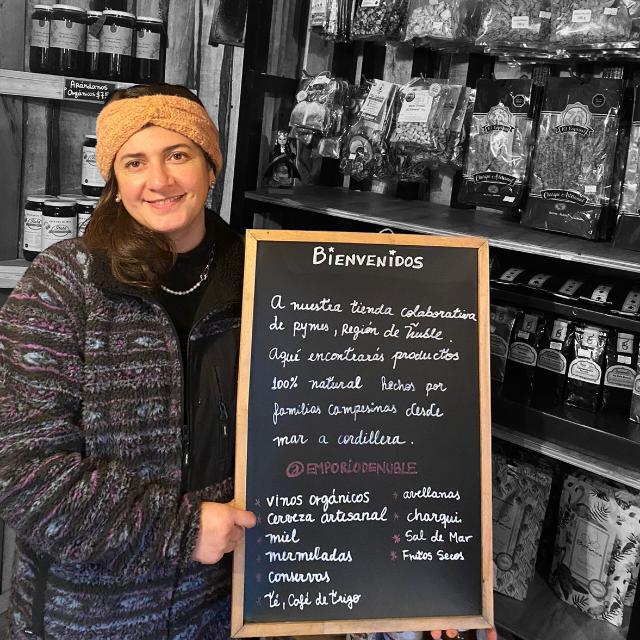 Arándanos
Orgánicos
BIENVENIDOS
A nuestra tienda colaborativa
de pymes, Región de Ñuble.
Aquí encontrarás productos
100% natural hechos por
familias campesinas desde
mar a cordillera.
@EMPORIODENUBLE
* vinos orgánicos
* cerveza artesanal
* miel
* mermeladas
* conservas
* té, Café de trigo
* avellanas
* charqui
* Sal de Mar
* Frutos Secos